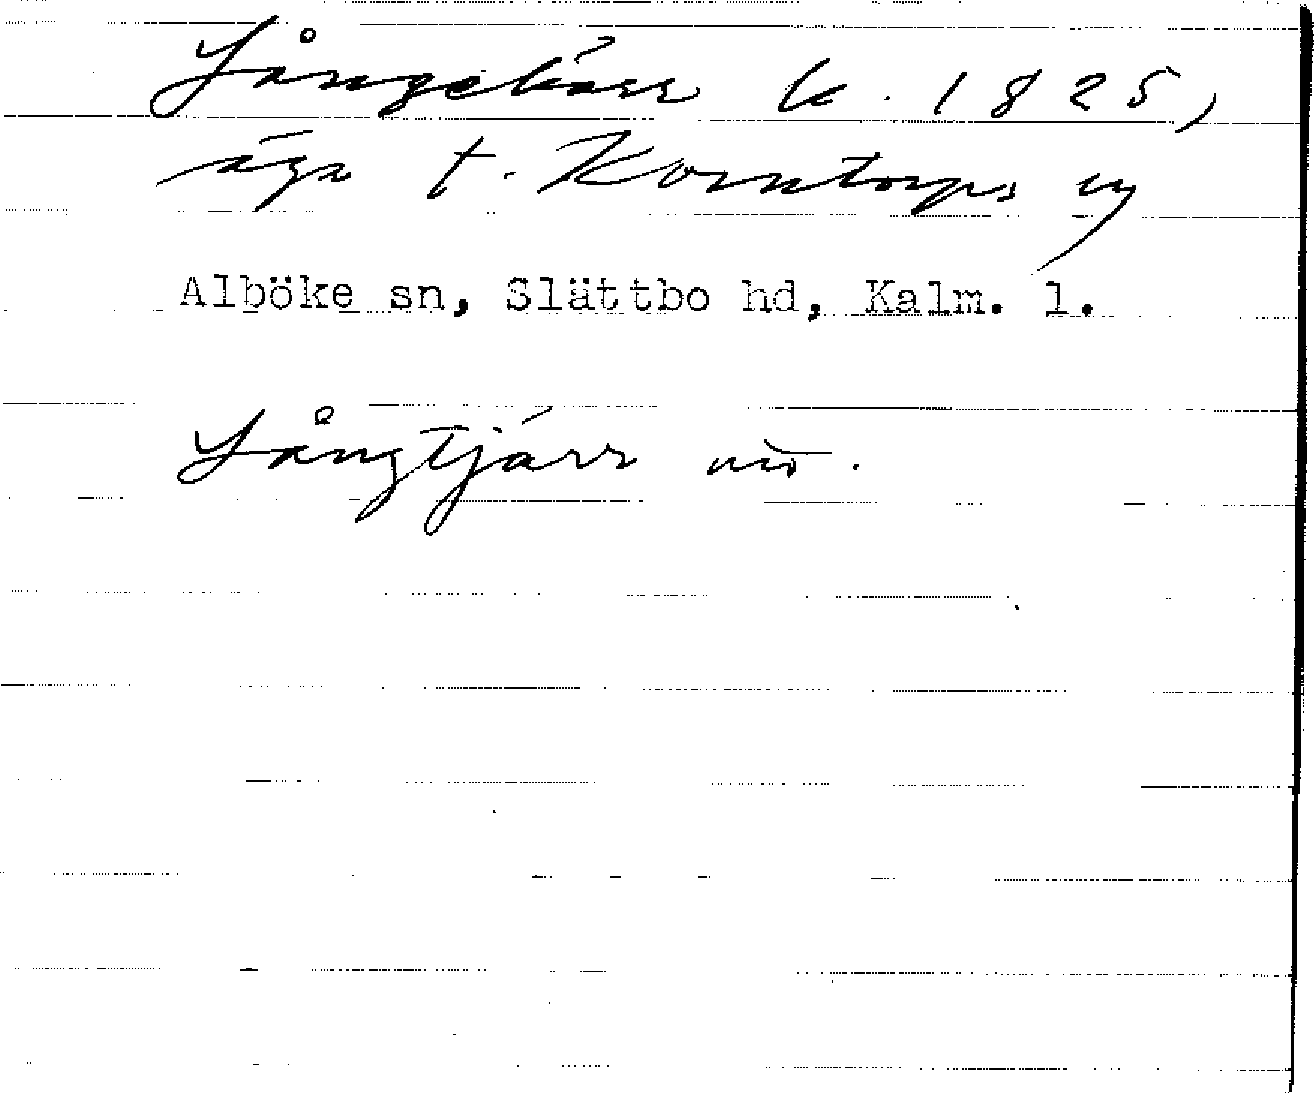 Långekärr k. 1825,
äga t. Korntorps by
Alböke sn, Slättbo hd, Kalm. l.
Långtjärr